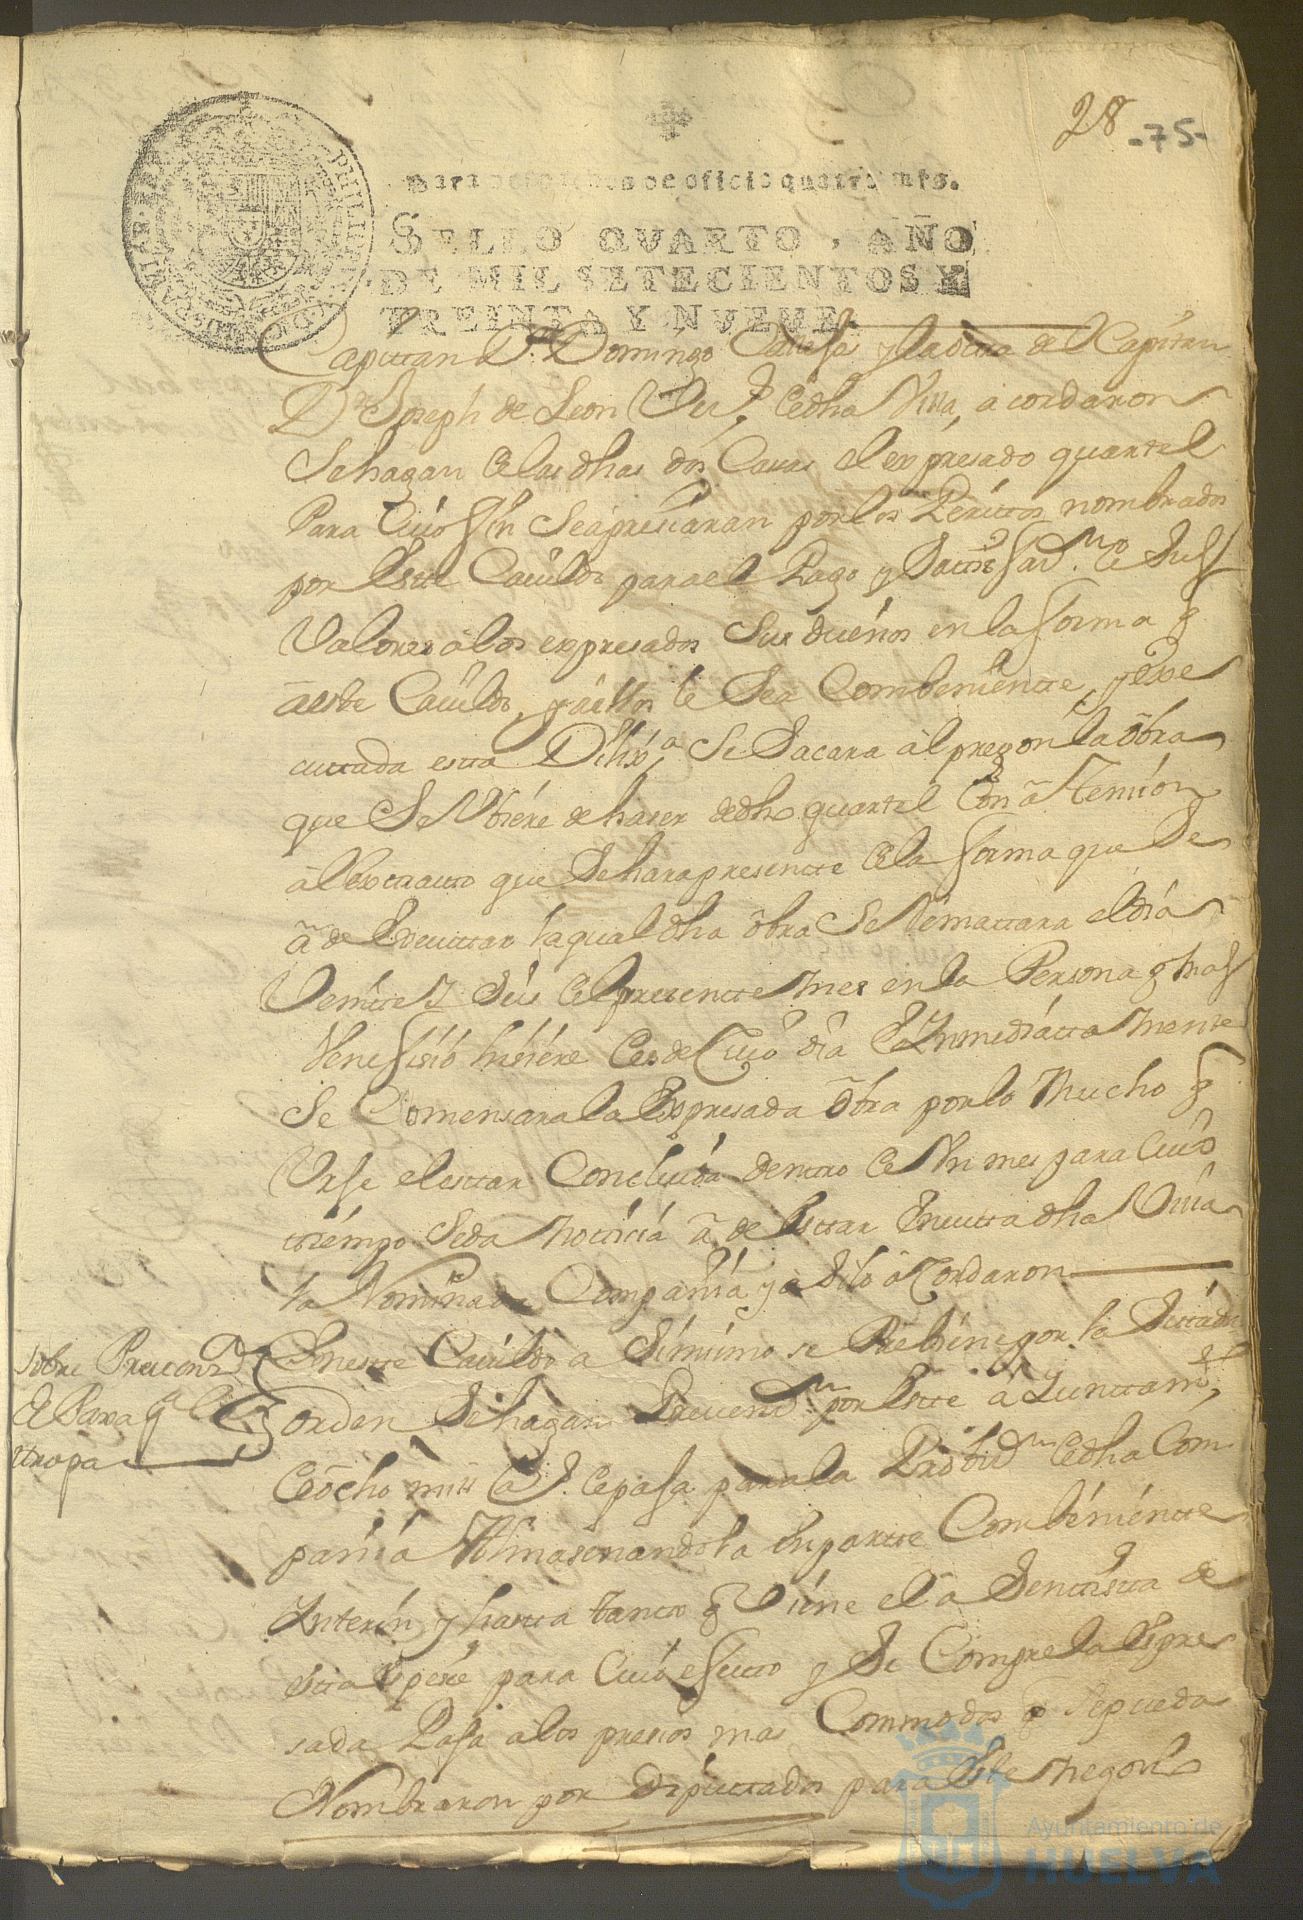 28
-75-
Para despachos de oficio quatro mrs.
SELLO QVARTO, AÑO
DE MIL SETECIENTOS Y
TREINTA Y NVEVE.
Capittan Dn. Domingo y la ottra del Capitan
Dn. Joseph de Leon Vez.s de dha Villa, acordaron
Se hagan de las dhas dos Casas el expresado quartel
Para Cuio fin Se apresiaran por los Perittos nombrados
por Este Cauildo para el Pago y Sattisfasn. de Sus
Valores a los expresados Sus dueños en la forma q
a este Cauildo, y a ellos le Sea Combeniente, y exe
cuttada esta Dilixa. Se Sacara al pregon la obra
que Se Ubiere de haser de dho quartel Con atension
al Extracto que Se hara presentte de la forma que Se
a de Executtar la qual dha obra Se Remattara el dia
Veintte y Seis del presentte mes en la Persona q mas
Venefisio hisiere desde Cuio dia E Inmediatta mente
Se Comensara la Expresada obra por lo Mucho q
Urje el estar Concluida dentro de Un mes para Cuio
tiempo Se da notticia a de Esttar En dha Villa
la Nominada Compañia y asi lo acordaron
Sobre Preuenn.
de Paxa pa. la
ttropa
En este Cauildo asimismo se Prebiene por la
orden Se hagan Preuensn. por Este Ayunttamto.
de ocho mill @s. de paxa para la Probisn. de dha Com
pañia Almasenandola En partte Combenientte
Interin y hasta tanto q Viene el Asentista de
para Cuio efecto y Se Compre la Expre
sada Paxa a los presios mas Commodos q se pueda
Nombraron por Diputtados para Este negosio
Ayuntamiento de
HUELVA